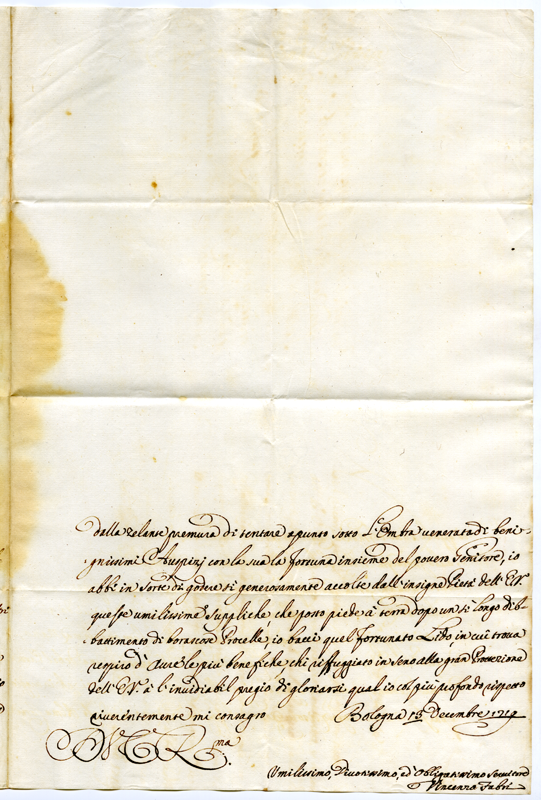 dalla zelante premura di tentare apunto sotto L'Ombra venerata di beni-
gnissimi Auspizj con la sua la fortuna insieme del povero Genitore, io
abbi in sorte di godere si generosamente accolte dall'insigne Pietà dell'E.V.
queste umilissime Suppliche che posto piede à terra dopo un si longo di-
battimento di borascose Procelle, io bacci quel fortunato Lido, in cui trova
respiro d'Aure le più benefiche, chi reffuggiato in seno alla gran Protezione
dell'E.V. à l'invidiabil pregio di gloriarsi qual io col più profondo rispetto
riverentemente mi consagro Bologna 15 Decembre 1719
Umilissimo, Devotissimo, ed Obligatissimo Servitore
Vincenzo Fabri